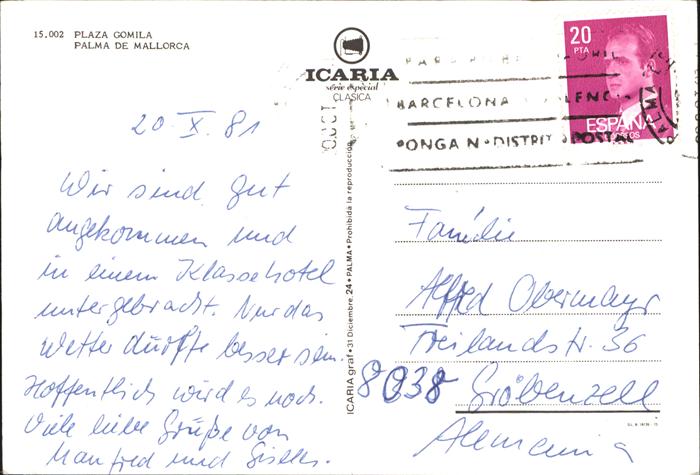 15.002 PLAZA GOMILA
PALMA DE MALLORCA
ICARIA
série espècial
CLASICA
20 PTA
ESPAÑA
BARCELONA VALENCIA
PONGA N· DISTRITO POSTAL
PALMA
ICARIA graf • 31 Diciembre, 24 • PALMA • Prohibida la reproducción
20. X. 81
Wir sind gut
angekommen und
in einem Klassehotel
untergebracht. Nur das
Wetter dürfte besser sein.
Hoffentlich wird es noch.
Viele liebe Grüße von
Manfred und
Familie
Alfred Obermayr
Freilandstr. 36
8038 Gröbenzell
Alemania